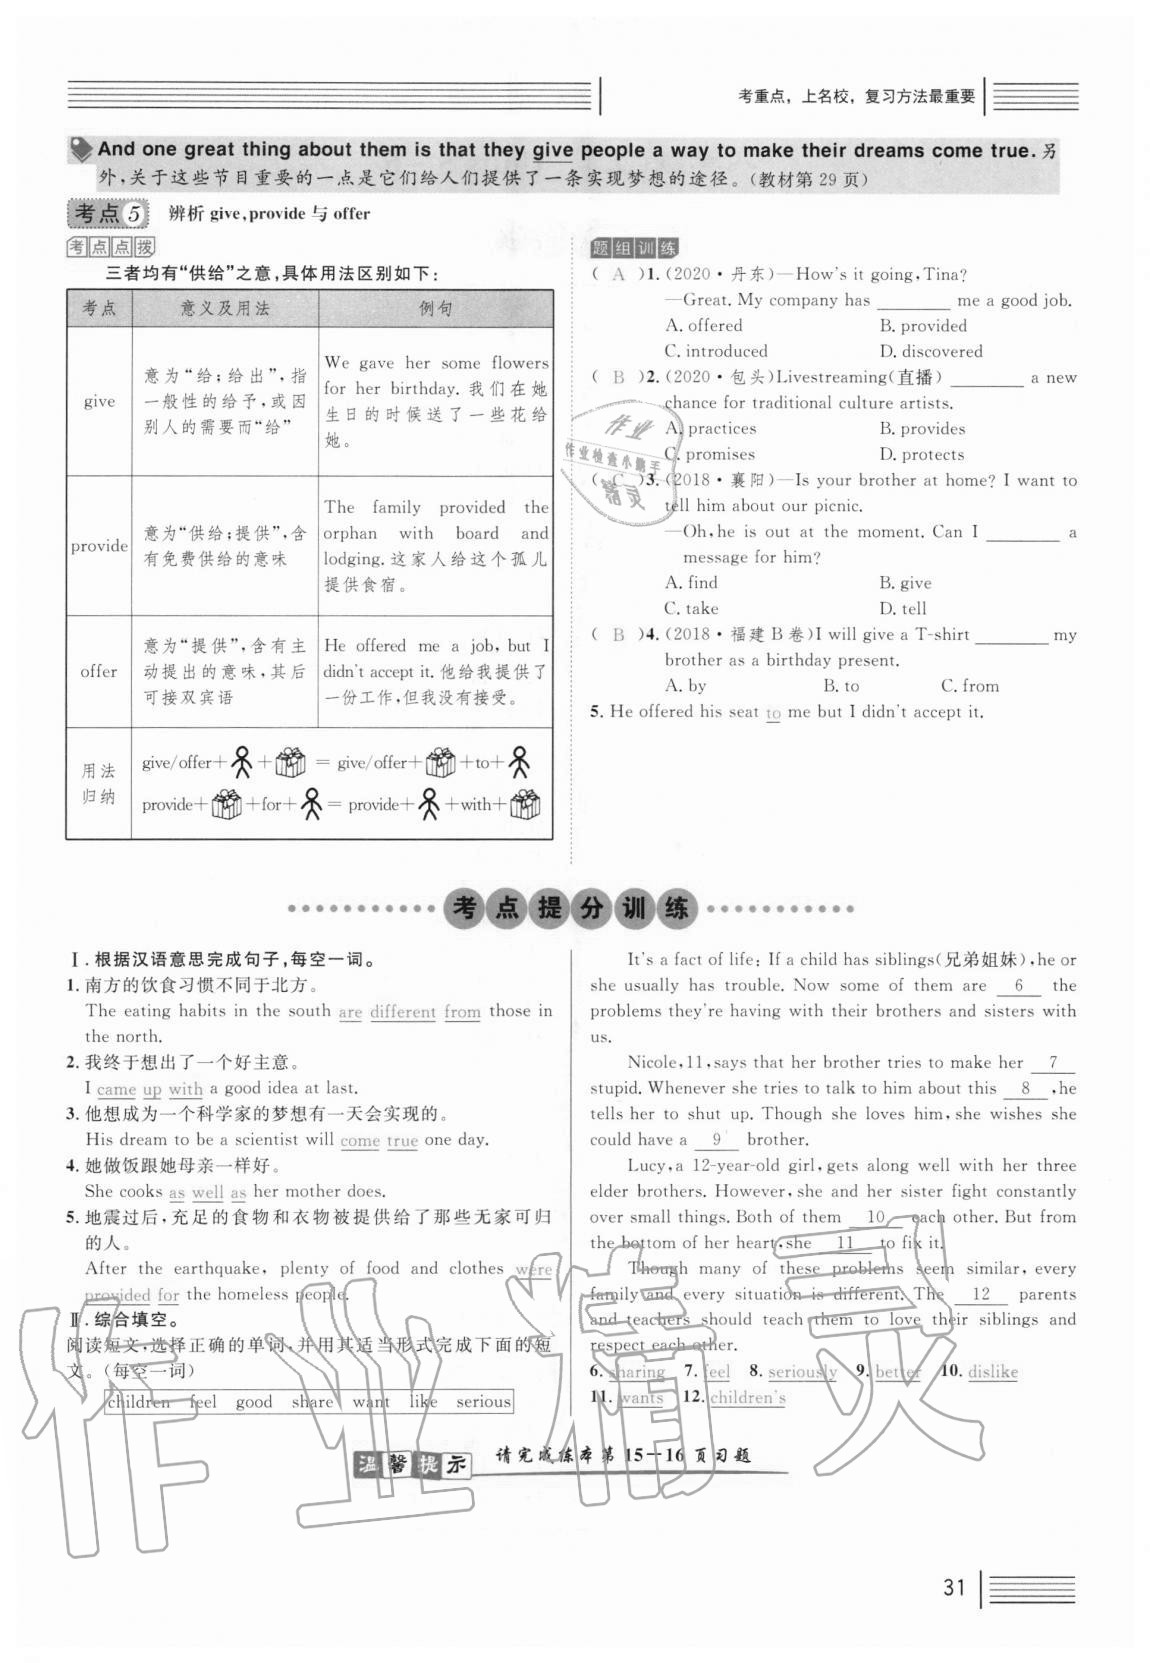 考重点，上名校，复习方法最重要
And one great thing about them is that they give people a way to make their dreams come true. 另
外,关于这些节目重要的一点是它们给人们提供了一条实现梦想的途径。(教材第 29 页)
考点 5 辨析 give,provide 与 offer
考点点拨
三者均有“供给”之意,具体用法区别如下:
考点 意义及用法 例句
give
意为“给;给出”,指
一般性的给予,或因
别人的需要而“给”
We gave her some flowers
for her birthday. 我们在她
生日的时候送了一些花给
她。
provide
意为“供给;提供”,含
有免费供给的意味
The family provided the
orphan with board and
lodging. 这家人给这个孤儿
提供食宿。
offer
意为“提供”,含有主
动提出的意味,其后
可接双宾语
He offered me a job, but I
didn't accept it. 他给我提供了
一份工作,但我没有接受。
用法
归纳
give/offer+ + = give/offer+ +to+
provide+ +for+ = provide+ +with+
题组训练
( A )1. (2020·丹东)—How's it going, Tina?
—Great. My company has ________ me a good job.
A. offered B. provided
C. introduced D. discovered
( B )2. (2020·包头)Livestreaming(直播) ________ a new
chance for traditional culture artists.
A. practices B. provides
C. promises D. protects
( C )3. (2018·襄阳)—Is your brother at home? I want to
tell him about our picnic.
—Oh, he is out at the moment. Can I ________ a
message for him?
A. find B. give
C. take D. tell
( B )4. (2018·福建 B 卷)I will give a T-shirt ________ my
brother as a birthday present.
A. by B. to C. from
5. He offered his seat to me but I didn't accept it.
考点提分训练
Ⅰ. 根据汉语意思完成句子,每空一词。
1. 南方的饮食习惯不同于北方。
The eating habits in the south are different from those in
the north.
2. 我终于想出了一个好主意。
I came up with a good idea at last.
3. 他想成为一个科学家的梦想有一天会实现的。
His dream to be a scientist will come true one day.
4. 她做饭跟她母亲一样好。
She cooks as well as her mother does.
5. 地震过后,充足的食物和衣物被提供给了那些无家可归
的人。
After the earthquake, plenty of food and clothes were
provided for the homeless people.
Ⅱ. 综合填空。
阅读短文,选择正确的单词,并用其适当形式完成下面的短
文。(每空一词)
children feel good share want like serious
It's a fact of life: If a child has siblings(兄弟姐妹), he or
she usually has trouble. Now some of them are 6 the
problems they're having with their brothers and sisters with
us.
Nicole, 11, says that her brother tries to make her 7
stupid. Whenever she tries to talk to him about this 8 , he
tells her to shut up. Though she loves him, she wishes she
could have a 9 brother.
Lucy, a 12-year-old girl, gets along well with her three
elder brothers. However, she and her sister fight constantly
over small things. Both of them 10 each other. But from
the bottom of her heart, she 11 to fix it.
Though many of these problems seem similar, every
family and every situation is different. The 12 parents
and teachers should teach them to love their siblings and
respect each other.
6. sharing 7. feel 8. seriously 9. better 10. dislike
11. wants 12. children's
温馨提示 请完成练本第 15－16 页习题
31
作业
作业检查小能手
精灵
作业精灵